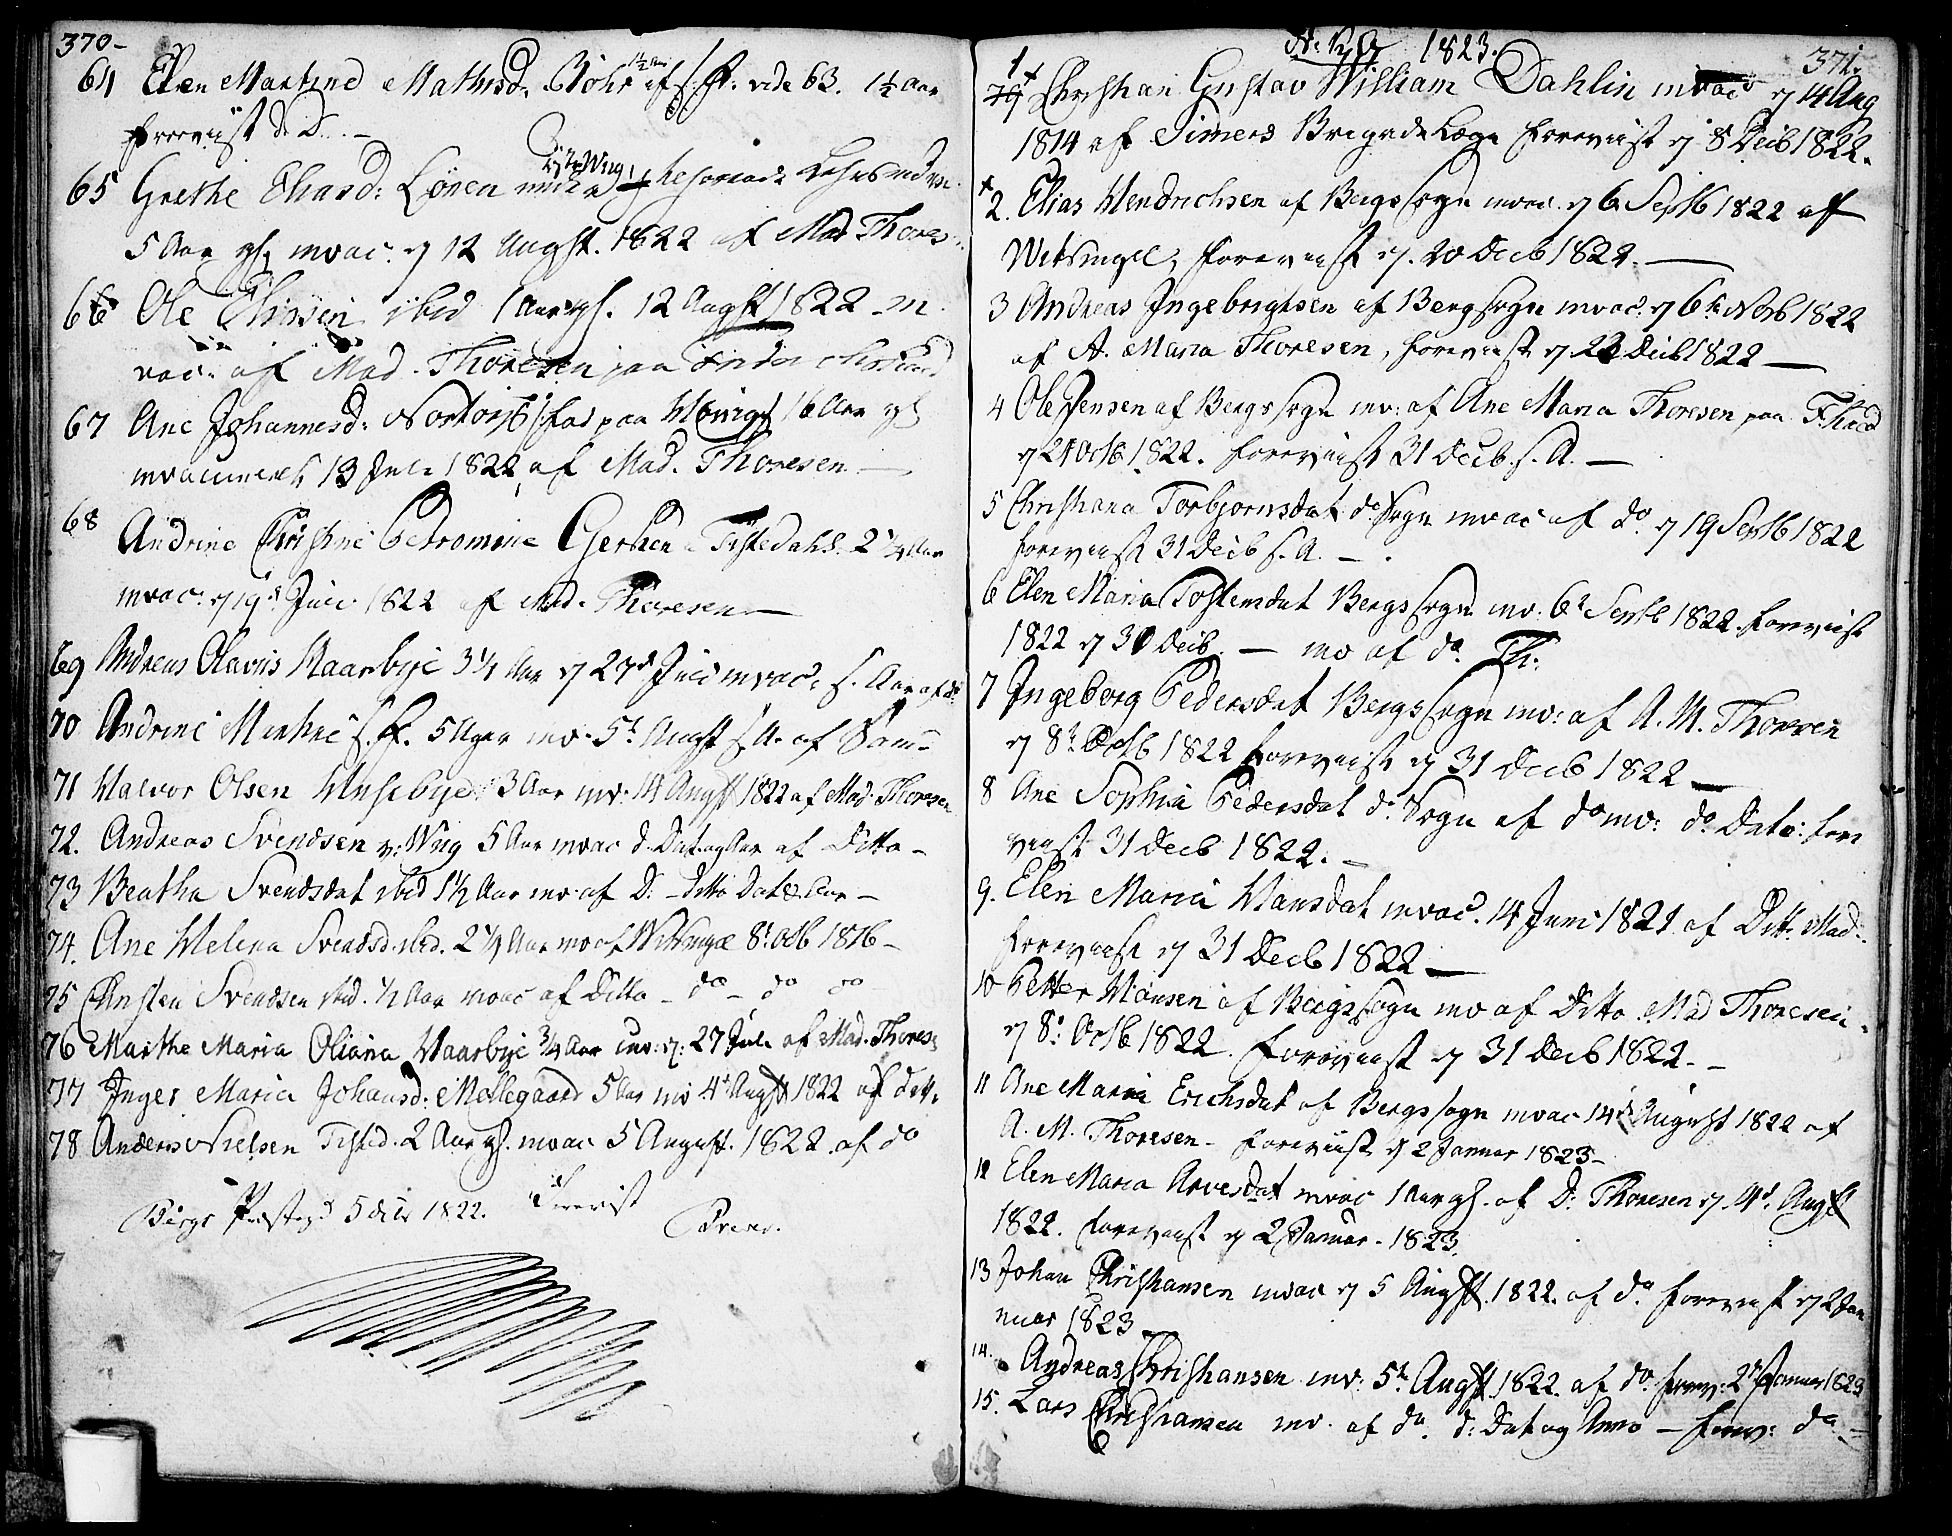 370-
64 Elen Martine Mathisd. Bøhr af s: St: vide 63. 1½ Aar
foreviist d. D. -
65 Grethe Eliasd: Løren
5 Aar gl. mvac: d 12 Augst. 1822 af Mad Thores:
66 Ole Eliesen ibid 1 Aar gl. 12 Augst 1822 m
vac: af Mad. Thoresen paa
67 Ane Johannesd: paa 16 Aar gl
mvacineret 13 Juli 1822 af Mad. Thoresen -
68
Andrine Christine Petromine Gerken Tistedahl. 2¼ Aar
mvac. d 19d Juli 1822 af Mad. Thoresen -
69 Andreas Olavus Haarbye 3¼ Aar d 27d Juli mvac. s. Aar af do
70 Andrine Minthe s. St. 5 Uger mv. 5t Augst s. A. af Sam-
71 Halvor Olsen Husebye 3 Aar mv: 14 Augst 1822 af Mad: Thoresen
72. Andreas Svendsen v: Wiig 5 Aar mvac d: Dat og Aar af Ditto -
73 Beatha Svendsdat ibid 1½ Aar mv. af D: - ditto Dat & Aar -
74. Ane Helena Svendsd. ibid. 2¼ Aar mv af Witsingel 8t Octb 1816 -
75 Christen Svendsen ibid. ½ Aar mvac af Ditto - do - do do
76 Marthe Maria Oliana Haarbye ¾ Aar mv: d: 27 Juli af Mad. Thores
77 Inger Maria Johansd: Møllegaard 5 Aar mv 4d Augst 1822 af ditt.
78 Anders Nielsen Tisted. 2 Aar gl. mvac 5 August. 1822. af do
Bergs Præstegd 5 1822.
1823.
371.
1
79 Christian Gustav William Dahlin mvac d 14 Aug
1814 af Simers Brigade Læge foreviist d 8 Decb 1822.
2. Elias Hendrichsen af Bergs Sogn mvac. d 6 Septb 1822 af
Witsingel, foreviist d. 20 Decb 1822. -
3 Andreas Ingebrigtsen af Bergs Sogn mvac. d 6te Novb 1822
af A. Maria Thoresen, foreviist d 23 Decb 1822 -
4 Ole Jensen af Bergs Sogn mv: af Ane Maria Thoresen paa F:hald
d 24 Octb 1822. foreviist 31 Decb. s. A. -
5 Christiana Torbjornsdat do Sogn mvac af do d 19 Septb 1822
foreviist 31 Decb s. A. -
6 Elen Maria Tostensdat Bergs Sogn mv. 6t Septb 1822. foreviist
1822 d 31 Decb. - mv af do Th:
7 Ingeborg Pedersdat Bergs Sogn mv: af A. M. Thoresen
d 8t Octb 1822 foreviist d 31 Decb 1822 -
8 Ane Sophia Pedersdat do Sogn af do mv: do Dato: fore
viist 31 Decb 1822. -
9. Elen Maria Hansdat mvac. 14 Juni 1821 af Ditt. Mad:
foreviist d 31 Decb 1822 -
10 Petter Hansen af Bergs Sogn mv af Ditto Mad Thoresen
d 8: Octb 1822. foreviist d 31 Decb 1822. -
11 Ane Maria Erichsdat af Bergs Sogn mvac 14de August 1822 af
A. M. Thoresen - foreviist d 2 Januar 1823 -
12 Elen Maria Arvesdat mvac 1 Aar gl. af D: Thoresen d. 4d. Augst
1822. foreviist d 2 Januar. 1823.
13 Johan Christiansen mvac d 5 Augst. 1822. af do foreviist d 2 Jan
nuar 1823
14. Andreas Christiansen mv: 5t Augst 1822. af do forev: 2d Januar 1823
15. Lars Christiansen mv. af do. d: Dat og Anno - forev: do -